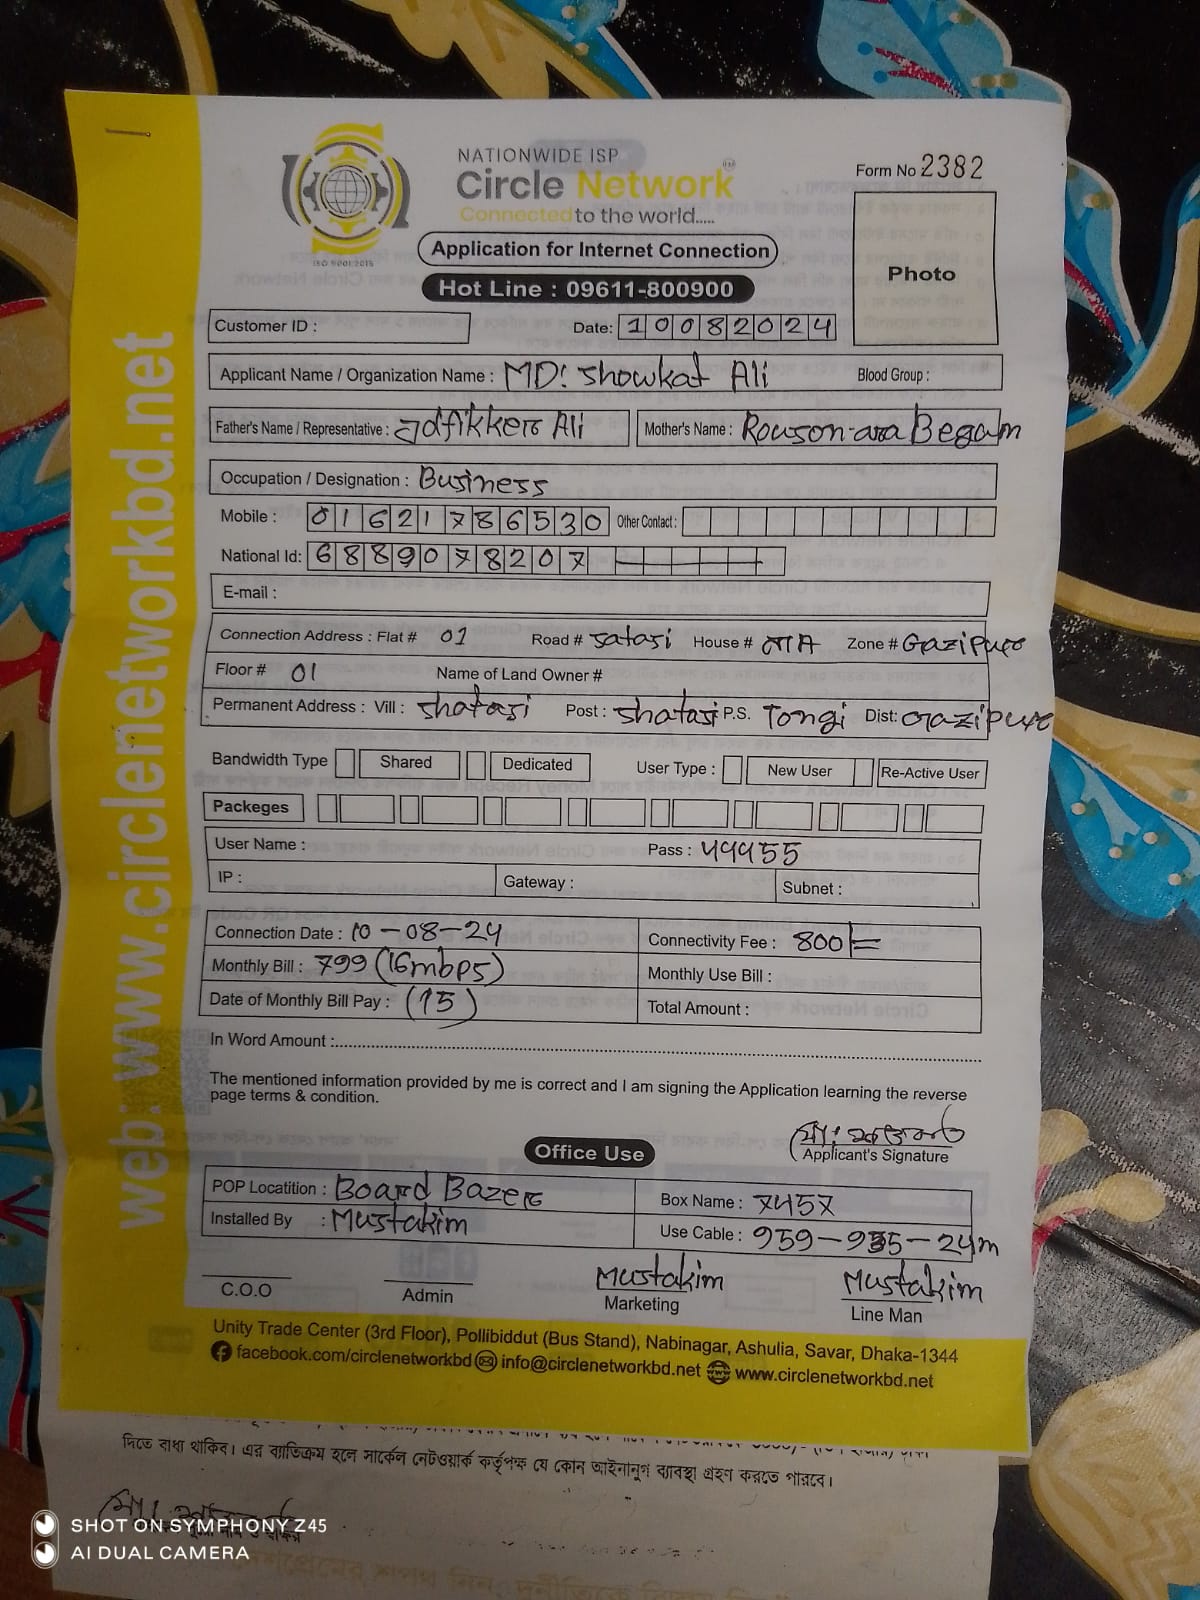 NATIONWIDE ISP
Circle Network
Connected to the world.....
ISO 9001:2015
Application for Internet Connection
Hot Line : 09611-800900
Form No 2382
Photo
Customer ID :
Date: 10082024
Applicant Name / Organization Name : MD: Showkat Ali Blood Group :
Father's Name / Representative : Ali Mother's Name : Rowson-ara Begam
Occupation / Designation : Business
Mobile : 01621786530 Other Contact :
National Id: 6889078207
E-mail :
Connection Address : Flat # 01 Road # Satasi House # Zone # Gazipur
Floor # 01 Name of Land Owner #
Permanent Address : Vill : Shatasi Post : Shatasi P.S. Tongi Dist: Gazipur
Bandwidth Type Shared Dedicated User Type : New User Re-Active User
Packeges
User Name : Pass : 44455
IP : Gateway : Subnet :
Connection Date : 10-08-24 Connectivity Fee : 800/=
Monthly Bill : 799 (16mbps) Monthly Use Bill :
Date of Monthly Bill Pay : (15) Total Amount :
In Word Amount :
The mentioned information provided by me is correct and I am signing the Application learning the reverse
page terms & condition.
Applicant's Signature
Office Use
POP Locatition : Board Bazer Box Name : 7457
Installed By : Mustakim Use Cable : 959-935-24m
Mustakim Mustakim
C.O.O Admin Marketing Line Man
Unity Trade Center (3rd Floor), Pollibiddut (Bus Stand), Nabinagar, Ashulia, Savar, Dhaka-1344
facebook.com/circlenetworkbd info@circlenetworkbd.net www.circlenetworkbd.net
web: www.circlenetworkbd.net
দিতে বাধ্য থাকিব। এর ব্যতিক্রম হলে সার্কেল নেটওয়ার্ক কর্তৃপক্ষ যে কোন আইনানুগ ব্যবস্থা গ্রহণ করতে পারবে।
SHOT ON SYMPHONY Z45
AI DUAL CAMERA